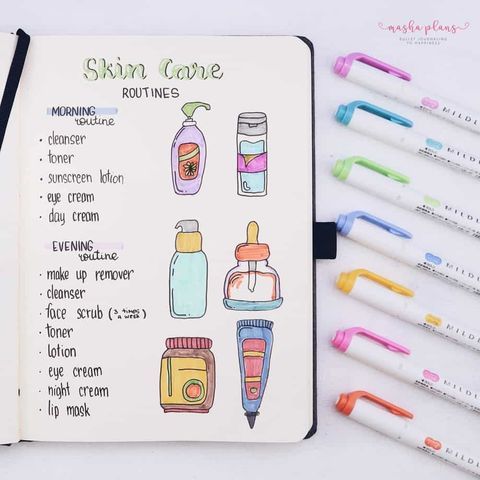 masha plans
BULLET JOURNALING
TO HAPPINESS
Skin Care
ROUTINES
MORNING
routine
• cleanser
• toner
• sunscreen lotion
• eye cream
• day cream
EVENING
routine
• make up remover
• cleanser
• face scrub (3 times
a week)
• toner
• lotion
• eye cream
• night cream
• lip mask
MILDL
MILDL
MILDL
MILDL
MILDL
MILDL
MILDL